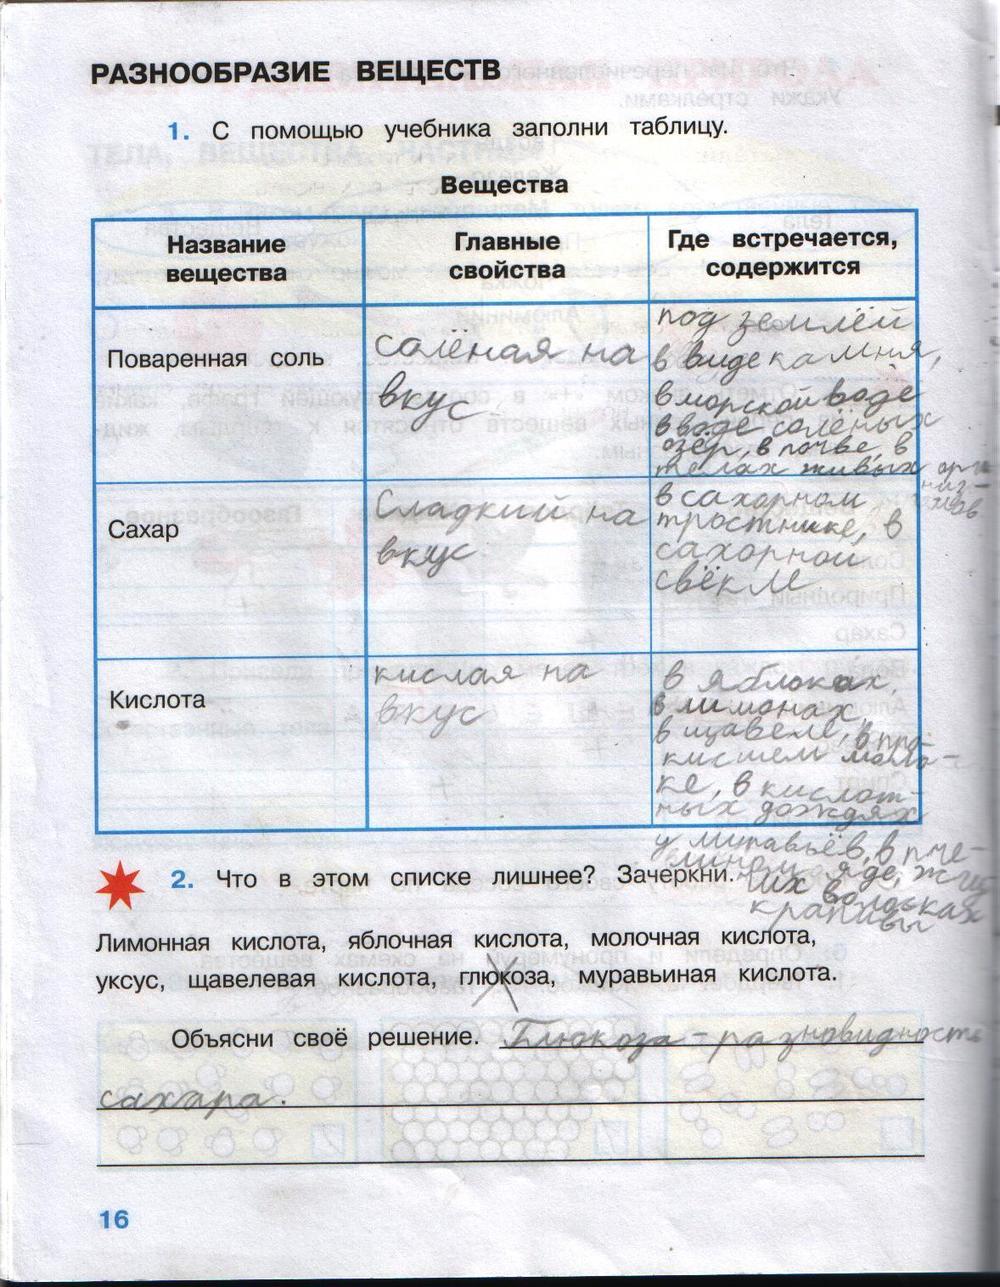 РАЗНООБРАЗИЕ ВЕЩЕСТВ
1. С помощью учебника заполни таблицу.
Вещества
Название вещества
Главные свойства
Где встречается, содержится
Поваренная соль
солёная на
вкус
под землёй
в виде камня,
в морской воде
в воде солёных
озёр, в почве, в
телах живых орга
низ-
мов
Сахар
Сладкий на
вкус
в сахорном
тростнике, в
сахорной
свёкле
Кислота
кислая на
вкус
в яблоках,
в лимонах,
в щавеле, в про-
кисшем моло-
ке, в кислот-
ных дождях
у муравьёв, в пче-
лином яде, жгу
чих волосках
крапивы
2. Что в этом списке лишнее? Зачеркни.
Лимонная кислота, яблочная кислота, молочная кислота,
уксус, щавелевая кислота, глюкоза, муравьиная кислота.
Объясни своё решение. Глюкоза - разновидность
сахара.
16